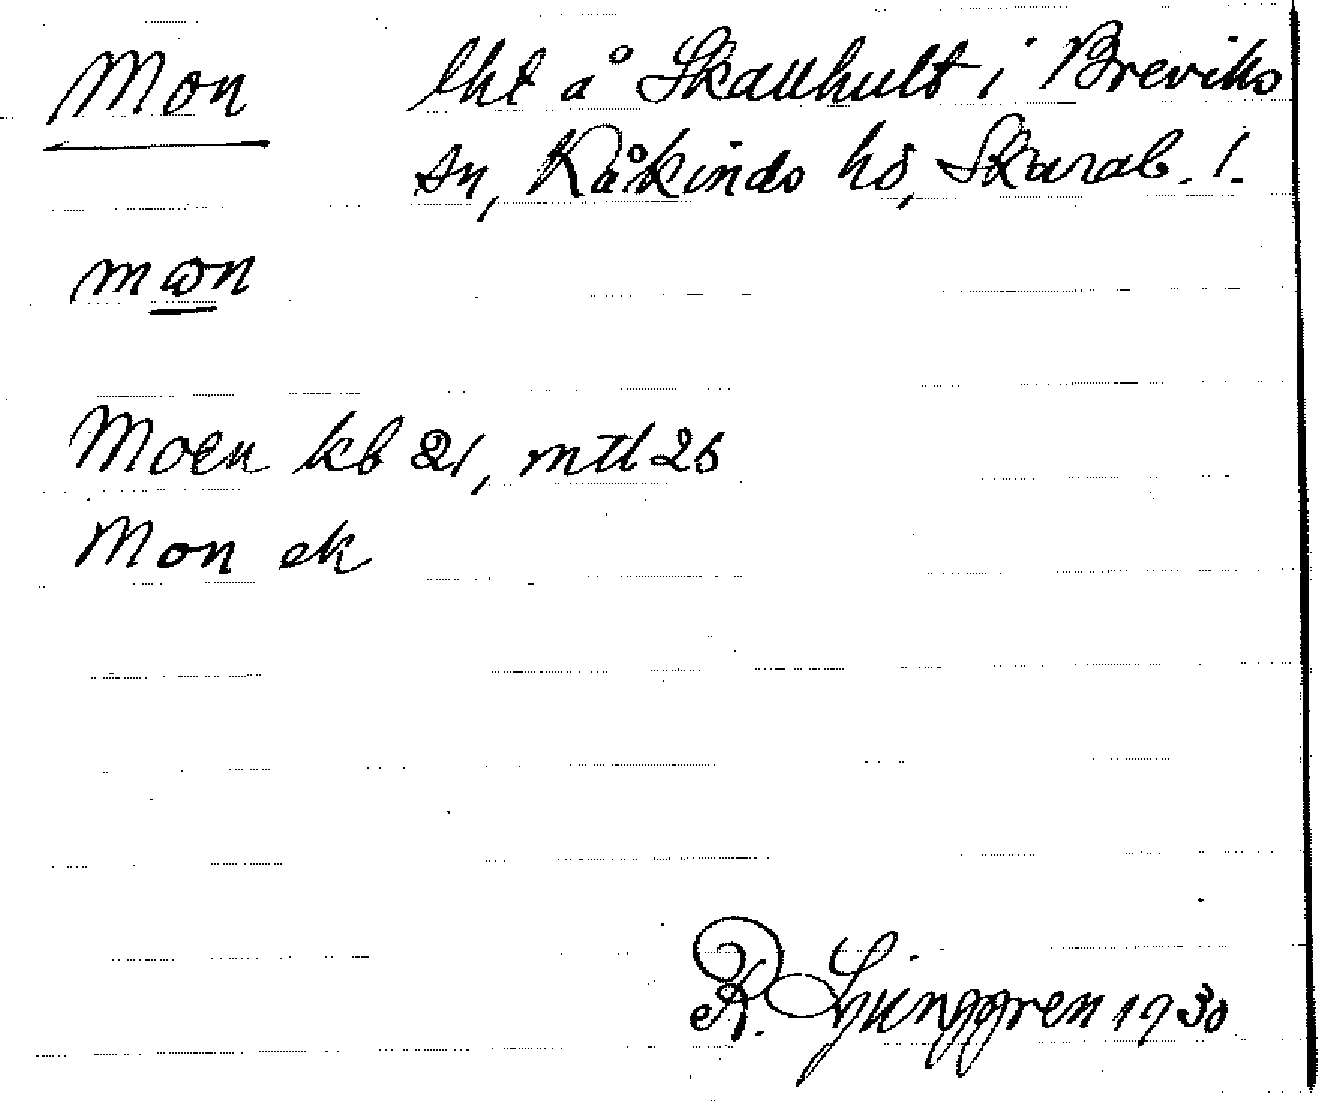 Mon lht å Skallhult i Breviks
sn, Kåkinds hd, Skarab. l.
mɷn
Moen kb 21, mtl 25
Mon ek
R. Ljunggren 1930